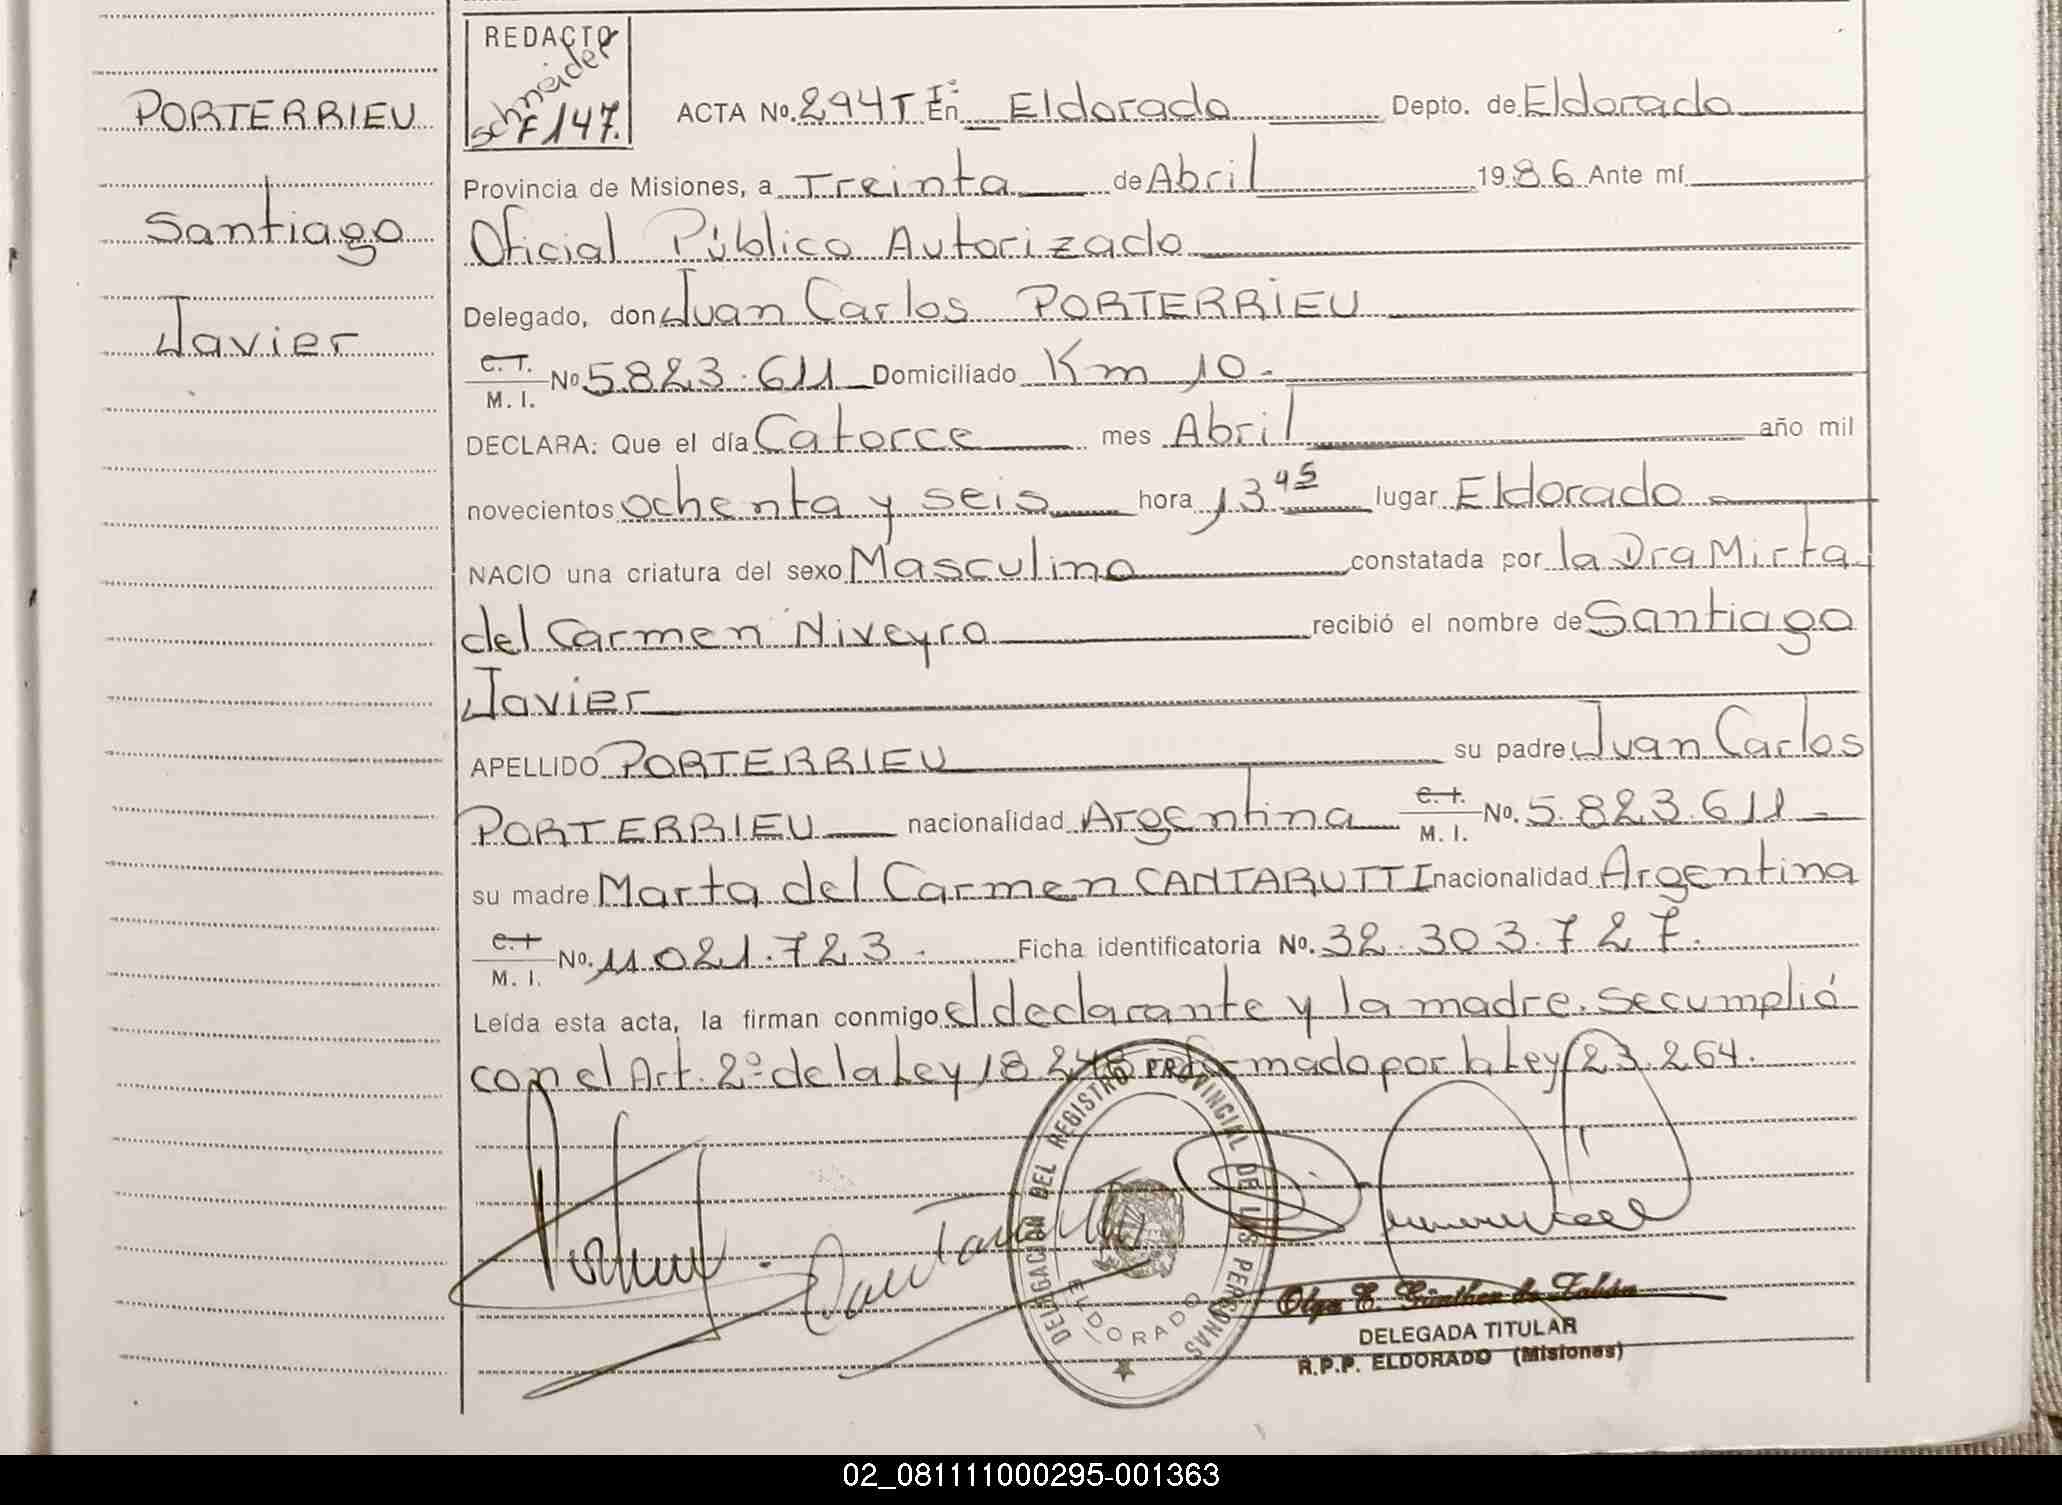 REDACTO
Schneider
F 147.
PORTERRIEU
Santiago
Javier
ACTA No. 294 T I: En Eldorado Depto. de Eldorado
Provincia de Misiones, a Treinta de Abril 1986 Ante mí
Oficial Público Autorizado
Delegado, don Juan Carlos PORTERRIEU
C.I. M. I. No 5.823.611 Domiciliado Km 10.
DECLARA: Que el día Catorce mes Abril año mil
novecientos ochenta y seis hora 13 45 lugar Eldorado
NACIO una criatura del sexo Masculino constatada por la Dra Mirta
del Carmen Niveyro recibió el nombre de Santiago
Javier
APELLIDO PORTERRIEU su padre Juan Carlos
PORTERRIEU nacionalidad Argentina C.I. M. I. No. 5.823.611
su madre Marta del Carmen CANTARUTTI nacionalidad Argentina
C.I. M. I. No. 11.021.723. Ficha identificatoria No. 32.303.727.
Leída esta acta, la firman conmigo el declarante y la madre. Se cumplió
con el Art. 2º de la Ley 18.248 reformado por la Ley 23.264.
DELEGACIÓN DEL REGISTRO PROVINCIAL DE LAS PERSONAS
ELDORADO
Olga E. Günther de
DELEGADA TITULAR
R.P.P. ELDORADO (Misiones)
02_081111000295-001363